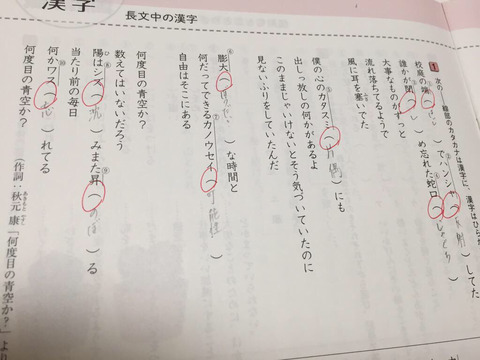 漢字
長文中の漢字
1 次の――線部のカタカナは漢字に、漢字はひらが
校庭の端（はし）でハンシャ（反射）してた
誰かが閉（し）め忘れた蛇口（じゃぐち）
大事なものがずっと
流れ落ちてるようで
風に耳を塞いでた
僕の心のカタスミ（片隅）にも
出しっ放しの何かがあるよ
このままじゃいけないとそう気づいていたのに
見ないふりをしていたんだ
⑥膨大（ぼうだい）な時間と
何だってできる⑦カノウセイ（可能性）
自由はそこにある
何度目の青空か？
数えてはいないだろう
陽は⑧シズ（沈）みまた⑨昇（のぼ）る
当たり前の毎日
何か⑩ワス（忘）れてる
何度目の青空か？
（作詞：秋元 康「何度目の青空か？」より